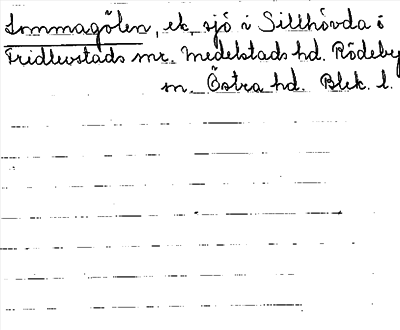 Sommagölen, ek. sjö i Sillhövda o
Fridlevstads snr. Medelstads hd. Rödeby
sn. Östra hd. Blek. l.